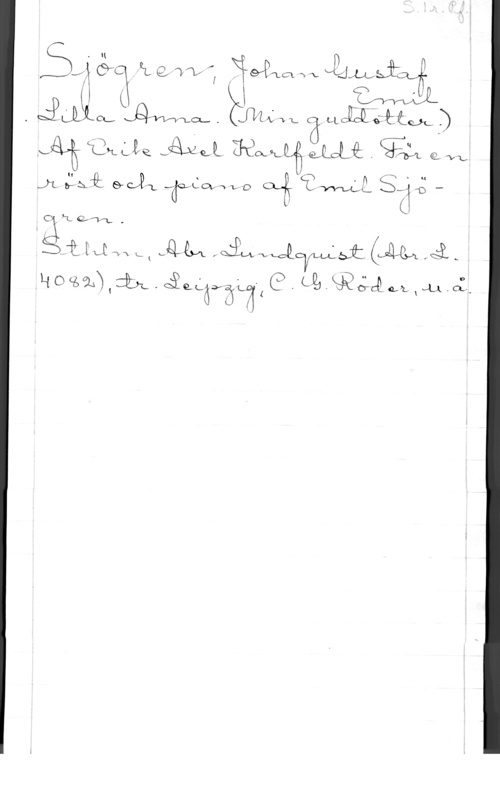 S. 1 r. Pf.
Sjögren, Johan Gustaf
Emil
Lilla Anna. (Min guddotter.)
Af Erik Axel Karlfeldt. För en
röst och piano af Emil Sjö-
gren.
Sthlm, Abr. Lundquist (Abr. L.
4082), tr. Leipzig, C. G. Röder, u. å.